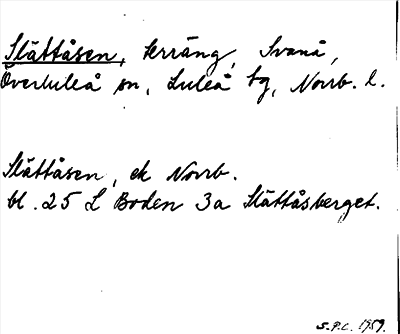 Slättåsen, terräng, Svanå,
Överluleå sn, Luleå tg, Norrb. l.
Slättåsen, ek Norrb.
bl. 25 L Boden 3a Slättåsberget.
S.P.L. 1959.